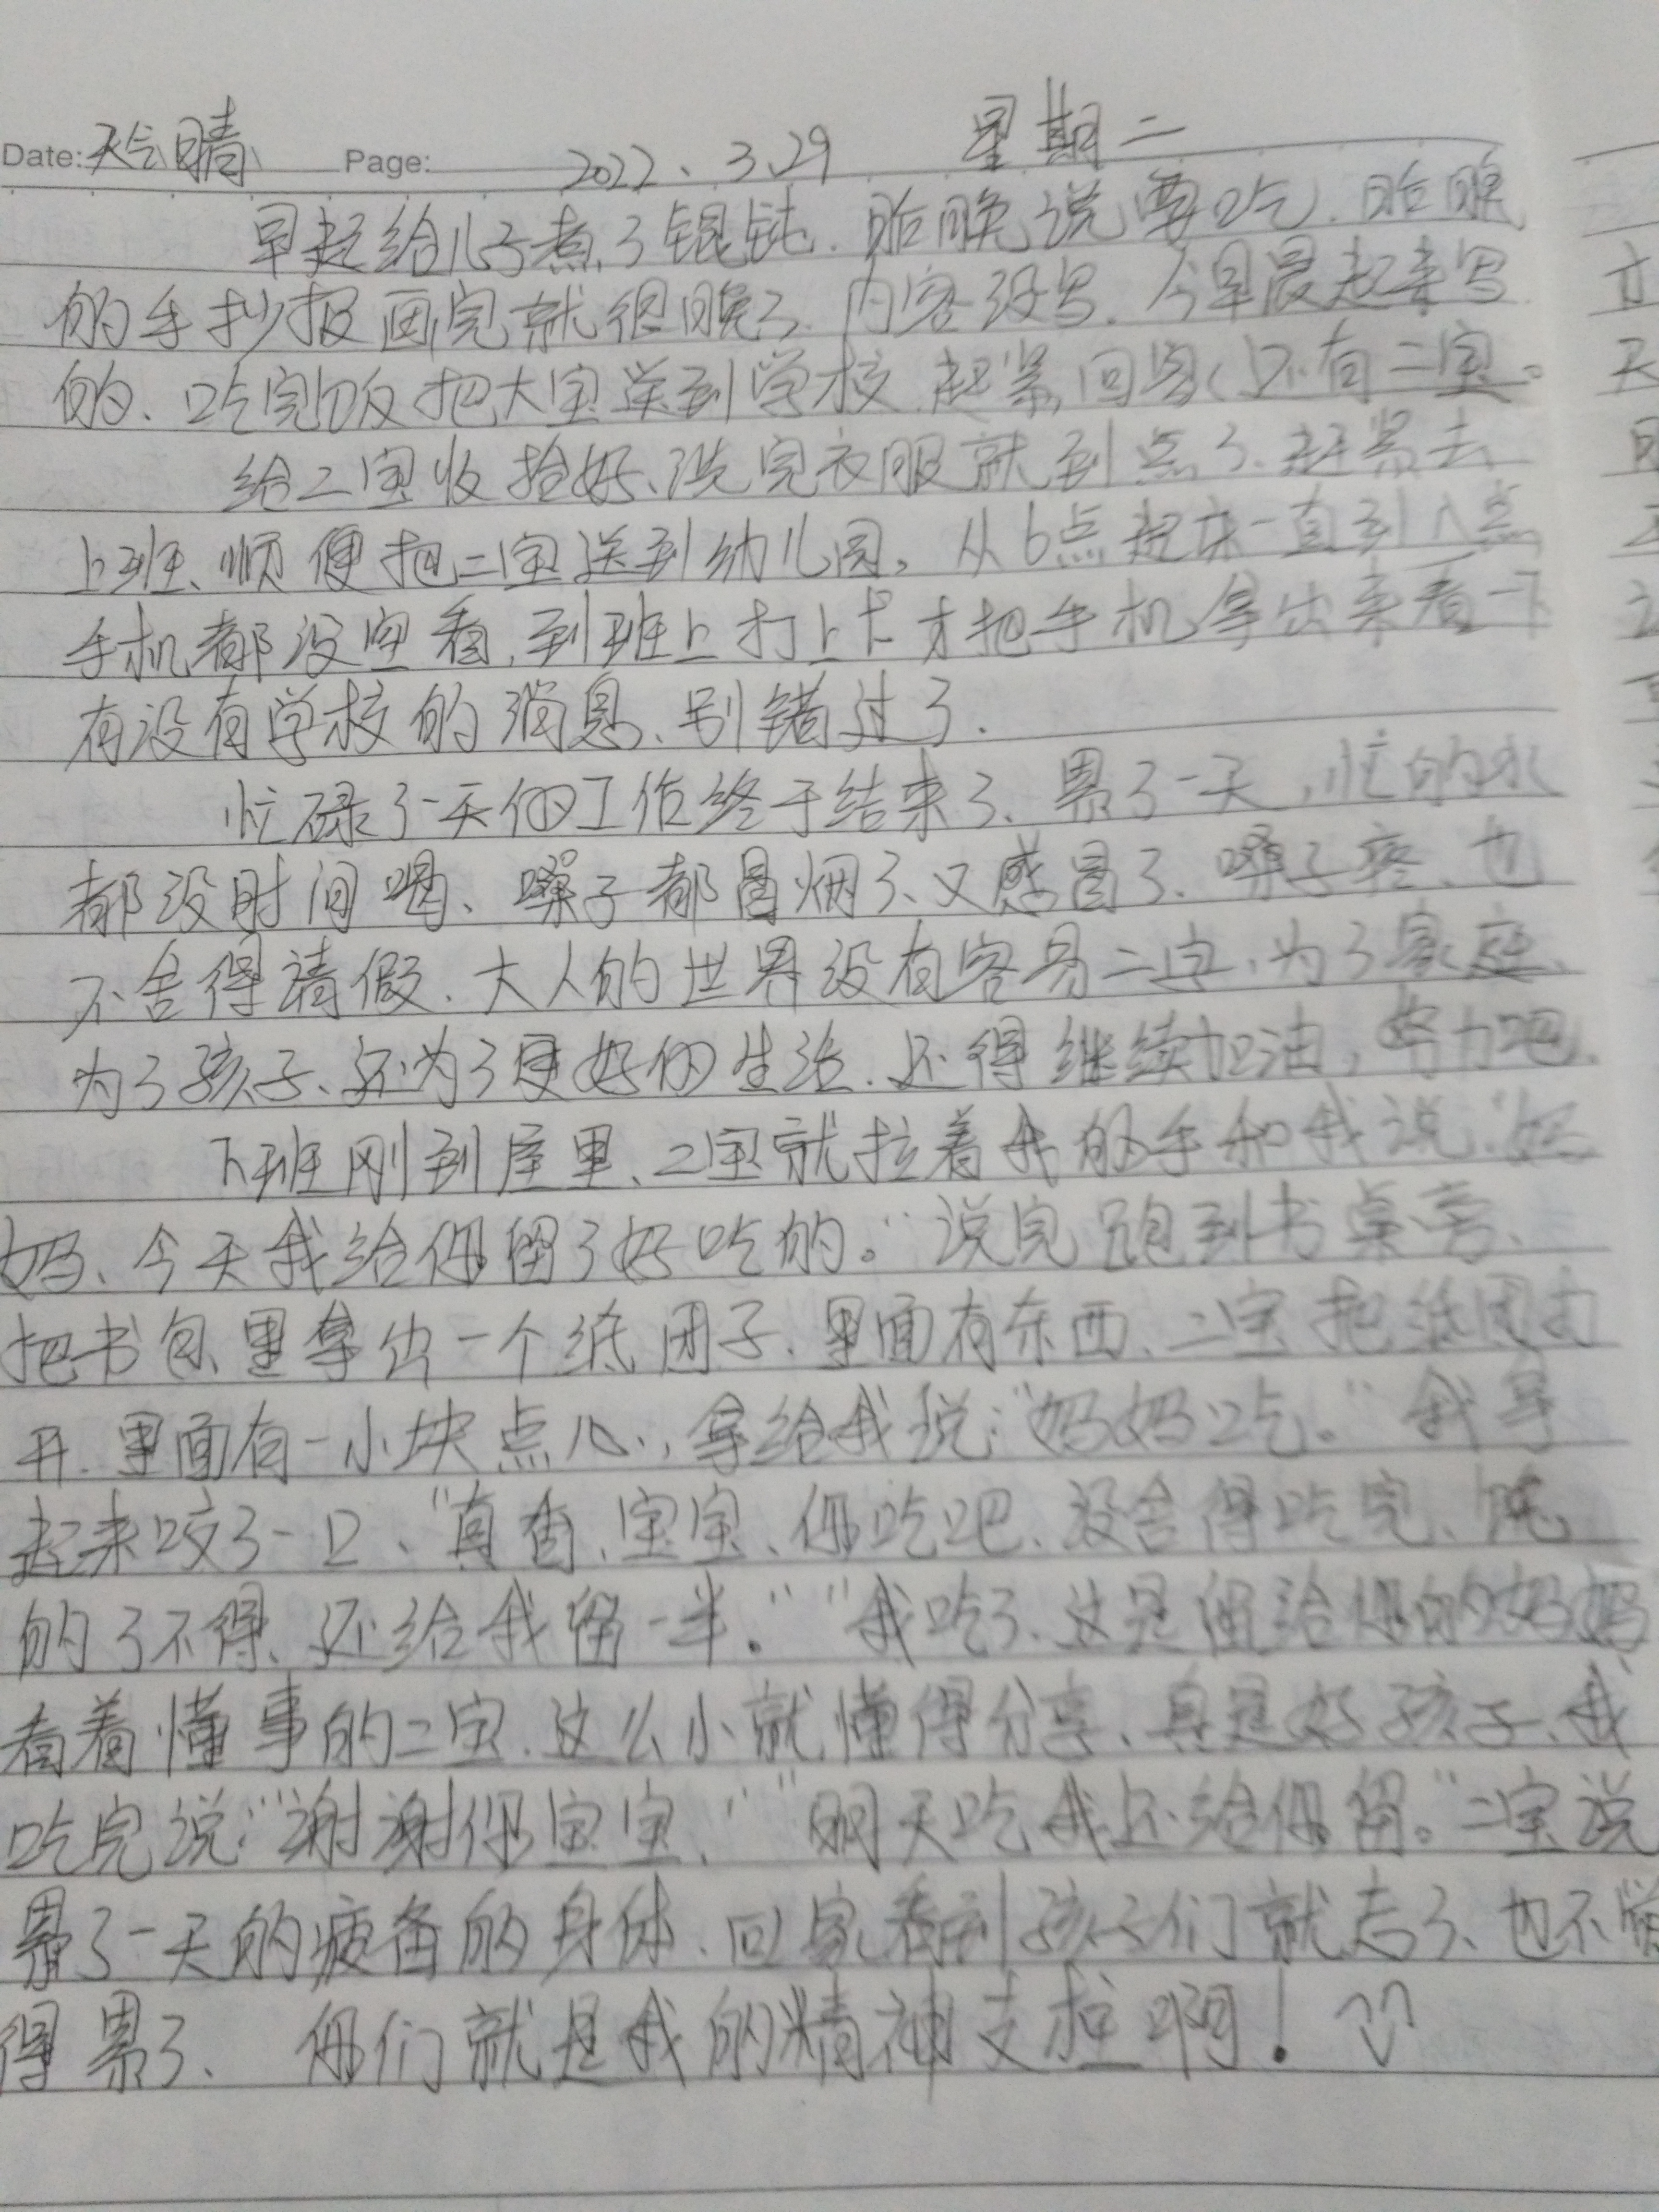 Date: 天气晴 Page: 2022、3.29 星期二
早起给儿子煮了馄饨.昨晚说要吃.昨晚
的手抄报画完就很晚了.内容没写.今早晨起来写
的、吃完饭把大宝送到学校.赶紧回家(还有二宝。
给二宝收拾好、洗完衣服就到点了.赶紧去
上班、顺便把二宝送到幼儿园。从6点起床一直到八点
手机都没空看,到班上打上卡才把手机拿出来看一下
有没有学校的消息、别错过了.
忙碌了一天的工作终于结束了、累了一天,忙的水
都没时间喝、嗓子都冒烟了、又感冒了、嗓子疼、也
不舍得请假.大人的世界没有容易二字,为了家庭、
为了孩子、还为了更好的生活.还得继续加油,努力吧.
下班刚到屋里、二宝就拉着我的手和我说:"妈
妈、今天我给你留了好吃的。"说完跑到书桌旁、
把书包里拿出一个纸团子.里面有东西、二宝把纸团打
开.里面有一小块点心,拿给我说:"妈妈吃。"我拿
起来咬了一口、"真香、宝宝、你吃吧、没舍得吃完、
的了不得、还给我留一半。""我吃了、这是留给你的妈妈
看着懂事的二宝.这么小就懂得分享、真是好孩子、我
吃完说:"谢谢你宝宝、""明天吃我还给你留。"二宝说
累了一天的疲备的身体.回家看到孩子们就忘了、也不觉
得累了、你们就是我的精神支柱啊!